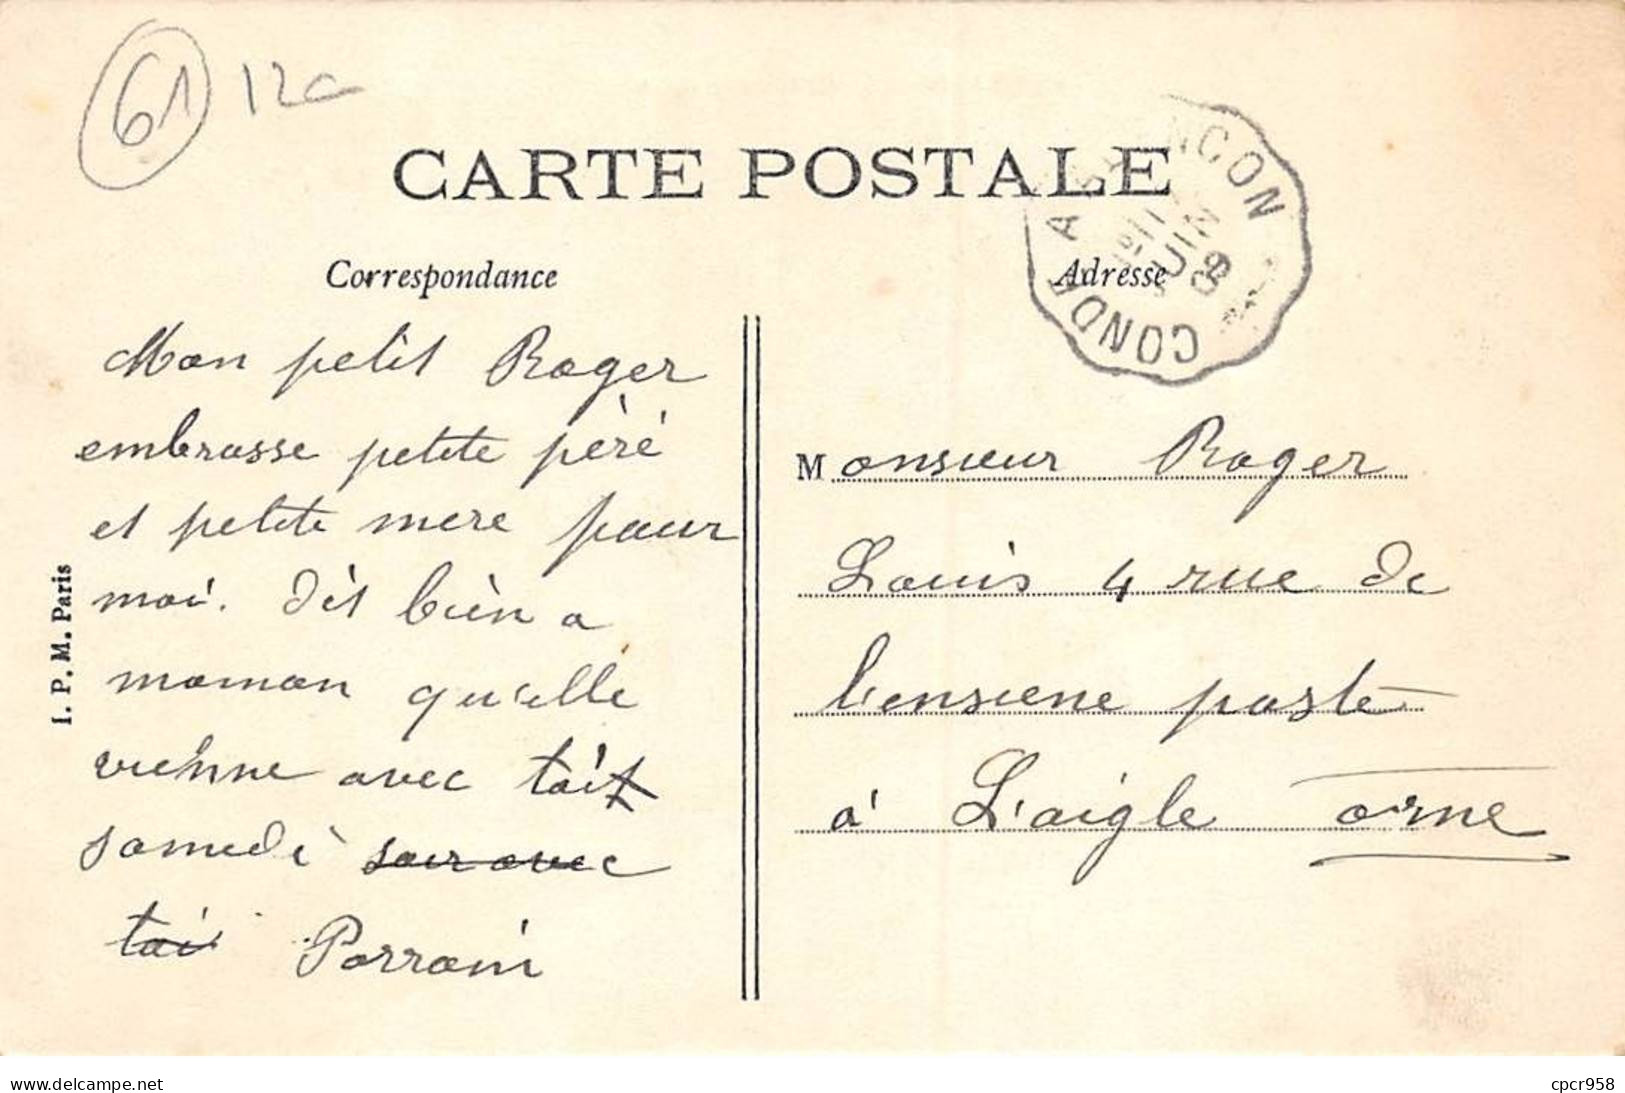 61 12c
CARTE POSTALE
CONDÉ A ALENÇON
11
JUIN
08
Correspondance
Adresse
Mon petit Roger
embrasse petite pèré
et petite mere pour
moi. dit bien a
maman qu'elle
vienne avec toit
samedi soir avec
toi Parrain
Monsieur Roger
Louis 4 rue de
l'ensiene poste
à L'aigle orne
I. P. M. Paris
www.delcampe.net
cpcr958